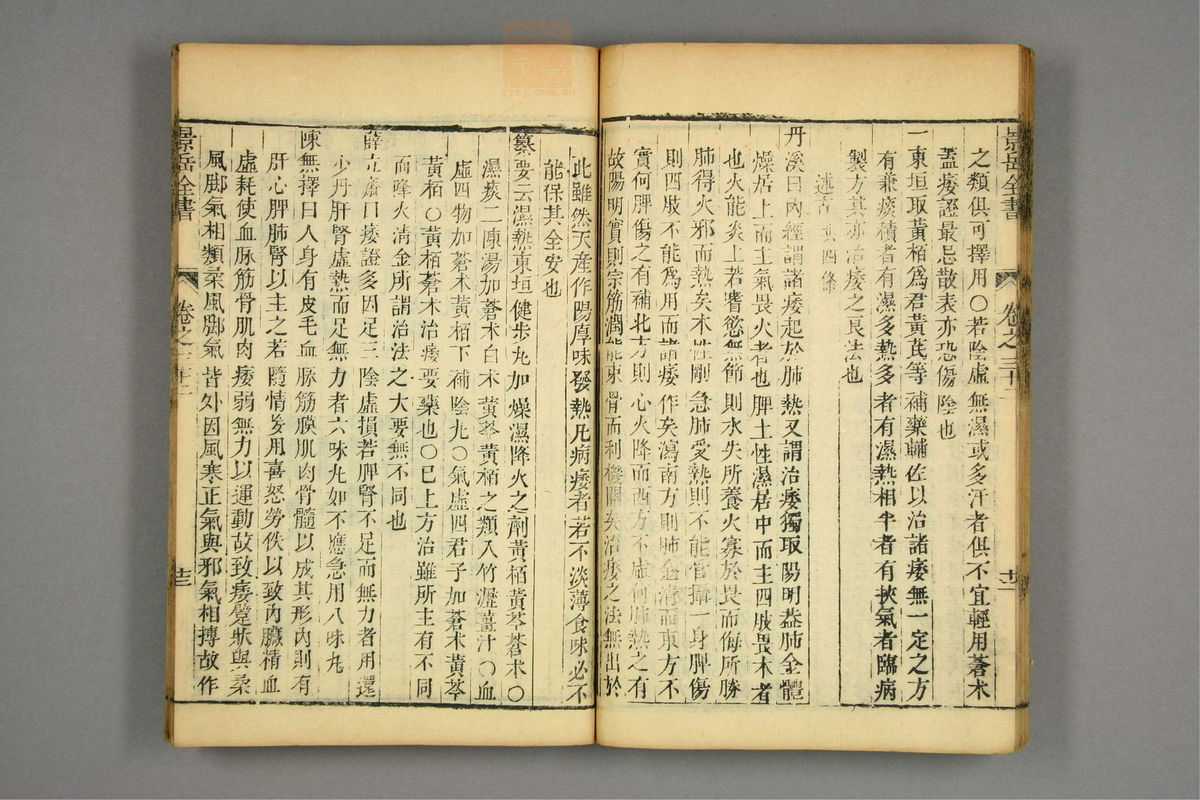 景岳全書
卷之三十二
十二
之類俱可擇用○若陰虛無濕或多汗者俱不宜輕用蒼朮
蓋痿證最忌散表亦恐傷陰也
一東垣取黃栢為君黃芪等補藥輔佐以治諸痿無一定之方
有兼痰積者有濕多熱多者有濕熱相半者有挾氣者臨病
製方其亦治痿之良法也
述古 共四條
丹溪曰內經謂諸痿起於肺熱又謂治痿獨取陽明葢肺金體
燥居上而主氣畏火者也脾土性濕居中而主四肢畏木者
也火能炎上若嗜慾無節則水失所養火寡於畏而侮所勝
肺得火邪而熱矣木性剛急肺受熱則不能管攝一身脾傷
則四肢不能為用而諸痿作矣瀉南方則肺金清而東方不
實何脾傷之有補北方則心火降而西方不虛何肺熱之有
故陽明實則宗筋潤能束骨而利機關矣治痿之法無出於
此雖然天產作陽厚味發熱凡病痿者若不淡薄食味必不
能保其全安也
纂要云濕熱東垣健步丸加燥濕降火之劑黃栢黃芩蒼朮○
濕痰二陳湯加蒼朮白朮黃芩黃栢之類入竹瀝薑汁○血
虛四物加蒼朮黃栢下補陰丸○氣虛四君子加蒼朮黃芩
黃栢○黃栢蒼朮治痿要藥也○已上方治雖所主有不同
而降火清金所謂治法之大要無不同也
薛立齋曰痿證多因足三陰虛損若脾腎不足而無力者用還
少丹肝腎虛熱而足無力者六味丸如不應急用八味丸
陳無擇曰人身有皮毛血脉筋膜肌肉骨髓以成其形內則有
肝心脾肺腎以主之若隨情妄用喜怒勞佚以致內臟精血
虛耗使血脉筋骨肌肉痿弱無力以運動故致痿躄狀與柔
風脚氣相類柔風脚氣皆外因風寒正氣與邪氣相搏故作
景岳全書
卷之三十二
十三